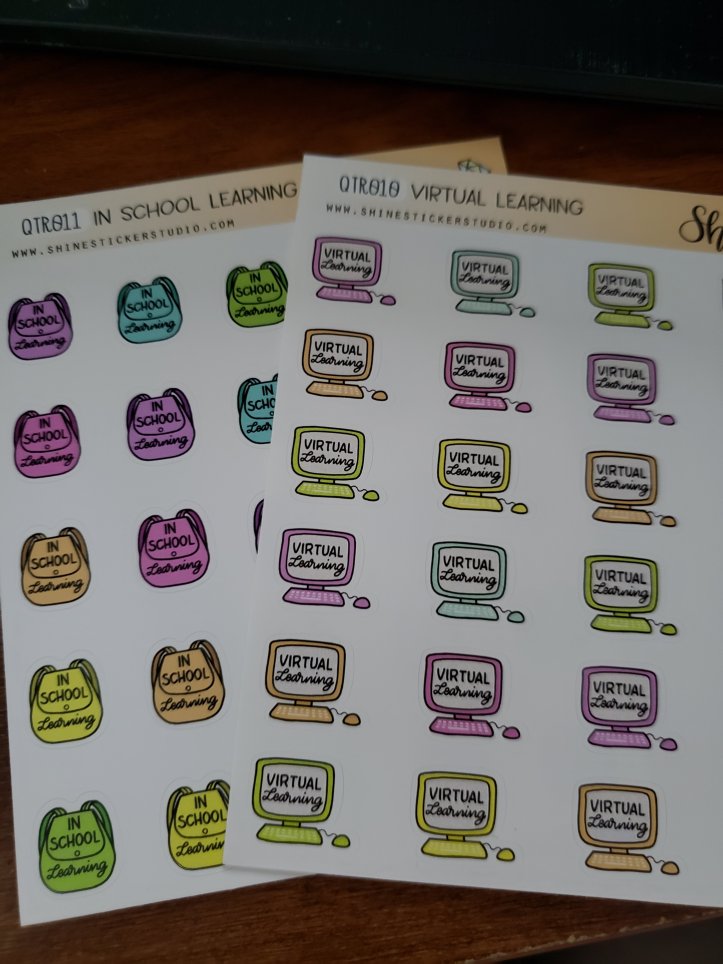 QTR011 IN SCHOOL LEARNING
WWW.SHINESTICKERSTUDIO.COM
IN
SCHOOL
Learning
IN
SCHOOL
Learning
IN
SCHOOL
Learning
IN
SCHOOL
Learning
IN
SCHOOL
Learning
IN
SCHO
IN
SCHOOL
Learning
IN
SCHOOL
Learning
IN
SCHOOL
Learning
IN
SCHOOL
Learning
IN
SCHOOL
Learning
IN
SCHOOL
Learnin
QTR010 VIRTUAL LEARNING
WWW.SHINESTICKERSTUDIO.COM
Sh
VIRTUAL
Learning
VIRTUAL
Learning
VIRTUAL
Learning
VIRTUAL
Learning
VIRTUAL
Learning
VIRTUAL
Learning
VIRTUAL
Learning
VIRTUAL
Learning
VIRTUAL
Learning
VIRTUAL
Learning
VIRTUAL
Learning
VIRTUAL
Learning
VIRTUAL
Learning
VIRTUAL
Learning
VIRTUAL
Learning
VIRTUAL
Learning
VIRTUAL
Learning
VIRTUAL
Learning